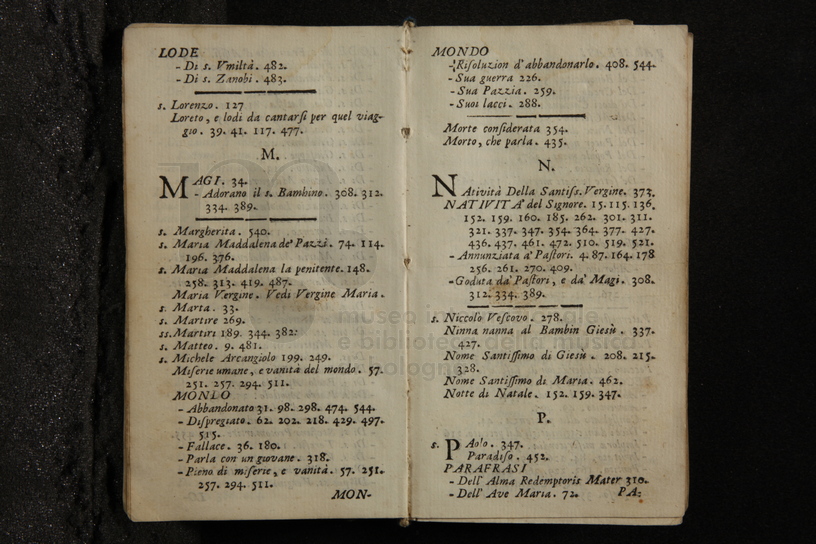 LODE
- Di s. Vmiltà. 482.
- Di s. Zanobi. 483.
s. Lorenzo. 127
Loreto, e lodi da cantarſi per quel viag-
gio. 39. 41. 117. 477.
M.
MAGI. 34.
- Adorano il s. Bambino. 308. 312.
334. 389.
s. Margherita. 540.
s. Maria Maddalena de' Pazzi. 74. 114.
196. 376.
s. Maria Maddalena la penitente. 148.
258. 313. 419. 487.
Maria Vergine. Vedi Vergine Maria.
s. Marta. 33.
s. Martire 269.
ss. Martiri 189. 344. 382.
s. Matteo. 9. 481.
s. Michele Arcangiolo 199. 249.
Miſerie umane, e vanità del mondo. 57.
251. 257. 294. 511.
MONDO
- Abbandonato 31. 98. 298. 474. 544.
- Diſpregiato. 62. 202. 218. 429. 497.
515.
- Fallace. 36. 180.
- Parla con un giovane. 318.
- Pieno di miſerie, e vanità. 57. 251.
257. 294. 511.
MON-
MONDO
- Riſoluzion d'abbandonarlo. 408. 544.
- Sua guerra 226.
- Sua Pazzia. 259.
- Suoi lacci. 288.
Morte conſiderata 354.
Morto, che parla. 435.
N.
NAtività Della Santiſs. Vergine. 373.
NATIVITA' del Signore. 15. 115. 136.
152. 159. 160. 185. 262. 301. 311.
321. 337. 347. 354. 364. 377. 427.
436. 437. 461. 472. 510. 519. 521.
- Annunziata a' Paſtori. 4. 87. 164. 178
256. 261. 270. 409.
- Goduta da' Paſtori, e da' Magi. 308.
312. 334. 389.
s. Niccolò Veſcovo. 278.
Ninna nanna al Bambin Gieſù. 337.
427.
Nome Santiſſimo di Gieſù. 208. 215.
328.
Nome Santiſſimo di Maria. 462.
Notte di Natale. 152. 159. 347.
P.
s. PAolo. 347.
Paradiſo. 452.
PARAFRASI
- Dell' Alma Redemptoris Mater 310.
- Dell' Ave Maria. 72.
PA-